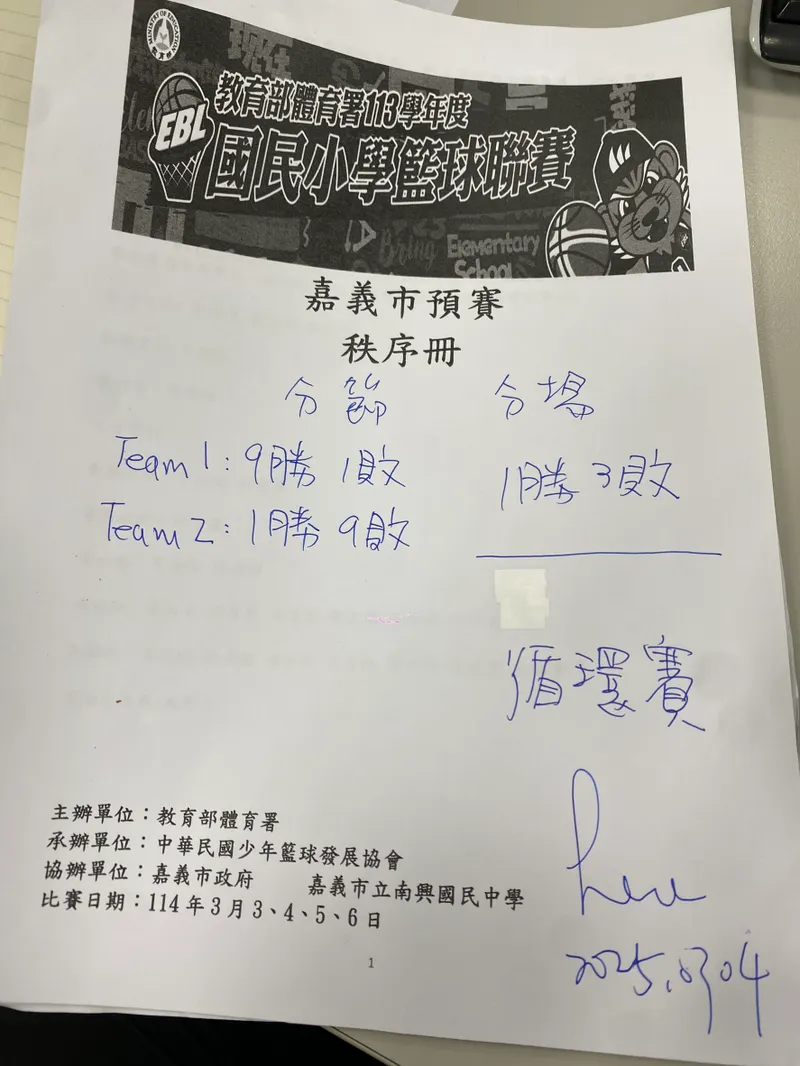 MINISTRY OF EDUCATION
EBL
教育部體育署113學年度
國民小學籃球聯賽
Bring
Elementary
School
嘉義市預賽
秩序冊
分節 分場
Team 1: 9勝 1敗
1勝 3敗
Team 2: 1勝 9敗
循環賽
2025.03.04
主辦單位：教育部體育署
承辦單位：中華民國少年籃球發展協會
協辦單位：嘉義市政府 嘉義市立南興國民中學
比賽日期：114 年 3 月 3、4、5、6 日
1